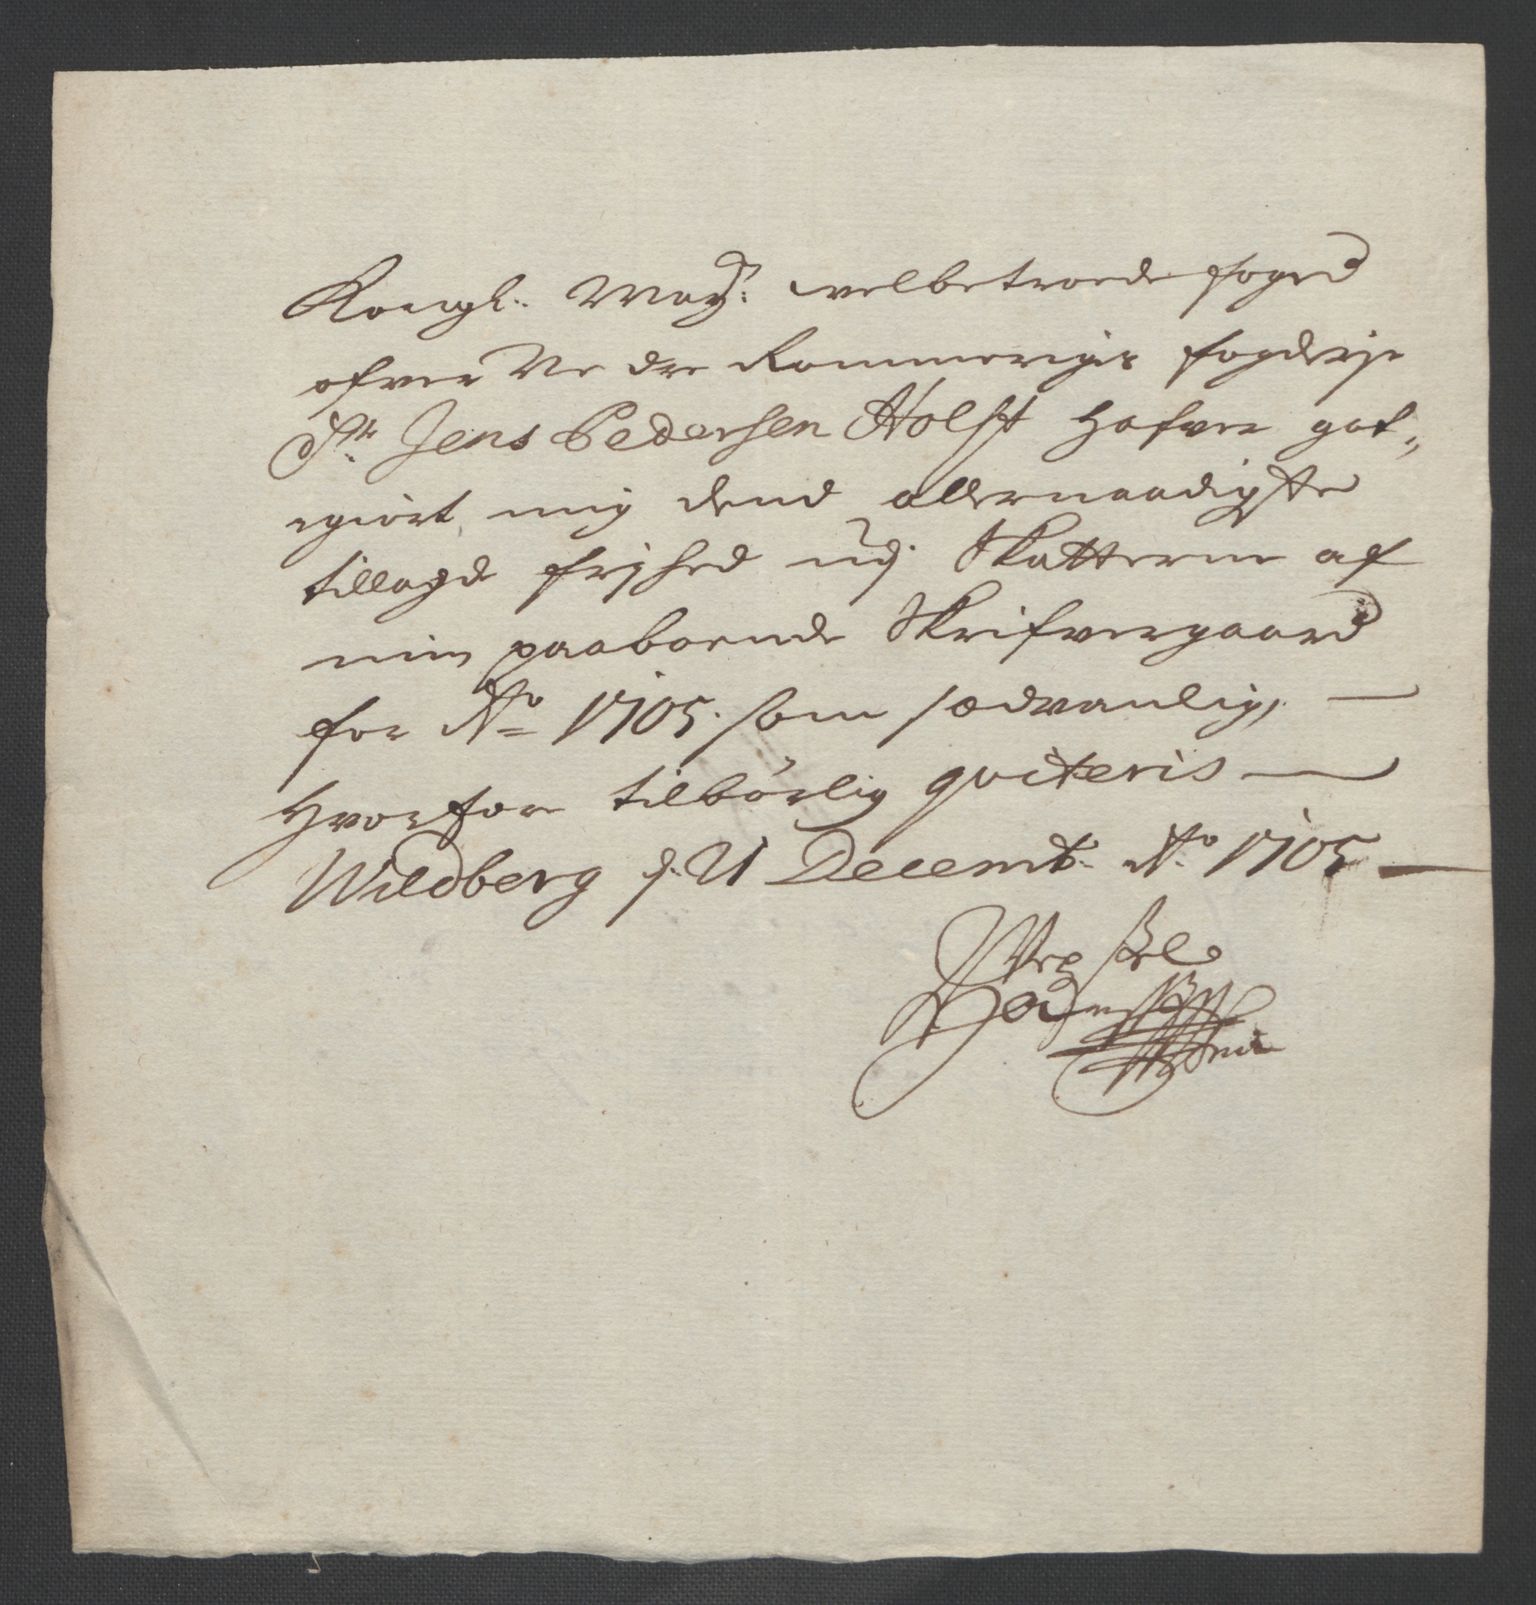 Kongl: May: welbetroede foged
ofver Nedre Rommerigis fogderje
Sr. Jens Pedersen Holst hafver got,,
egiort mig dend allernaadigste
tillagde frjhed udj Skatterne af
min paaboende Skrifvergaard
for Ao 1705. som sædvanlig, —
Hvorfor tilbörlig qviteris —
Wildberg d. 21 Decemb: Ao 1705 —